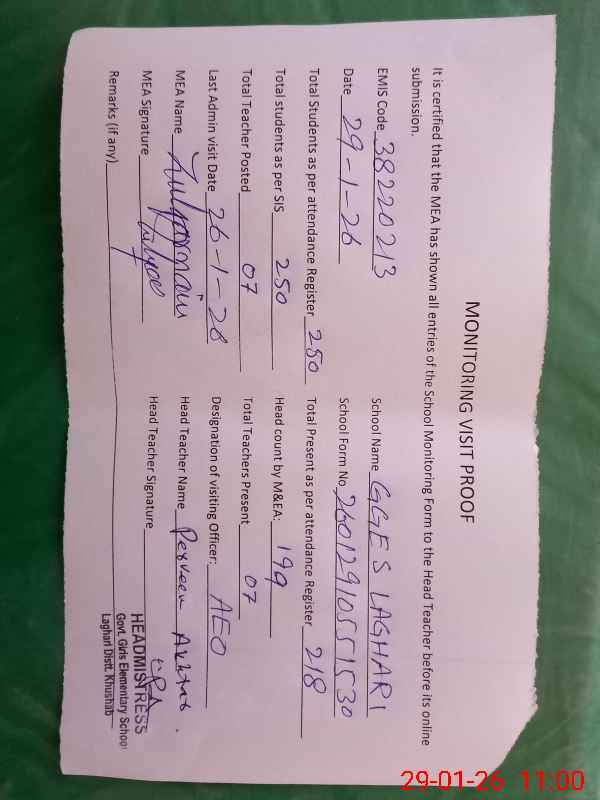 MONITORING VISIT PROOF
It is certified that the MEA has shown all entries of the School Monitoring Form to the Head Teacher before its online
submission.
EMIS Code 38220213 School Name GGES LAGHARI
Date 29-1-26 School Form No 26012910551530
Total Students as per attendance Register 250 Total Present as per attendance Register 218
Total students as per SIS 250 Head count by M&EA: 199
Total Teacher Posted 07 Total Teachers Present 07
Last Admin visit Date 26-1-26 Designation of visiting Officer: AEO
MEA Name Head Teacher Name Perveen Akhtar.
MEA Signature Head Teacher Signature
HEADMISTRESS
Govt. Girls Elementary School
Laghari Distt. Khushab
Remarks (if any)
29-01-26 11:00